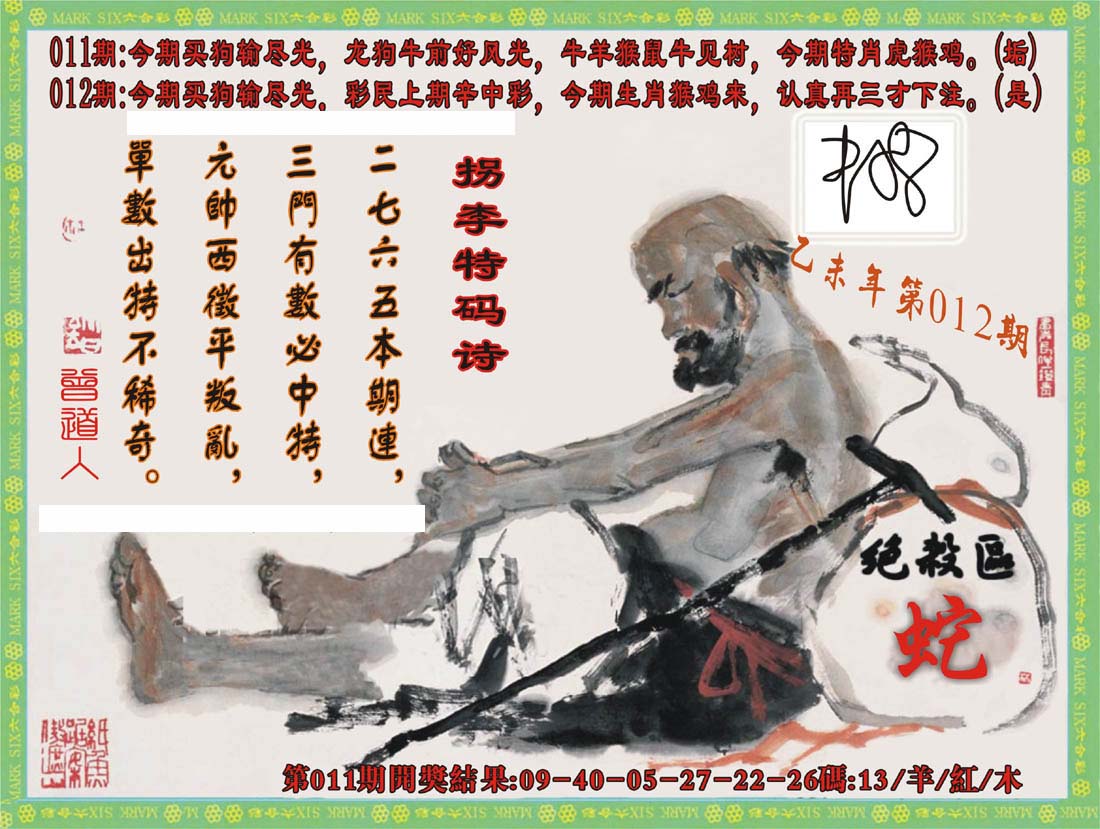 MARK SIX六合彩
011期:今期买狗输尽光，龙狗牛前好风光，牛羊猴鼠牛见树，今期特肖虎猴鸡。(垢)
012期:今期买狗输尽光．彩民上期辛中彩，今期生肖猴鸡来，认真再三才下注。(是)
拐李特码诗
二七六五本期連，
三門有數必中特，
元帥西徵平叛亂，
單數出特不稀奇。
曾道人
乙未年第012期
绝殺區
蛇
第011期開獎結果:09-40-05-27-22-26碼:13/羊/紅/木